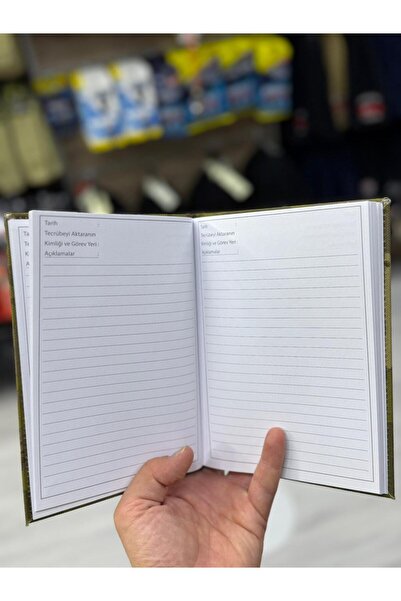 Tarih
Tecrübeyi Aktaranın
Kimliği ve Görev Yeri
Açıklamalar
Tarih
Tecrübeyi Aktaranın
Kimliği ve Görev Yeri
Açıklamalar